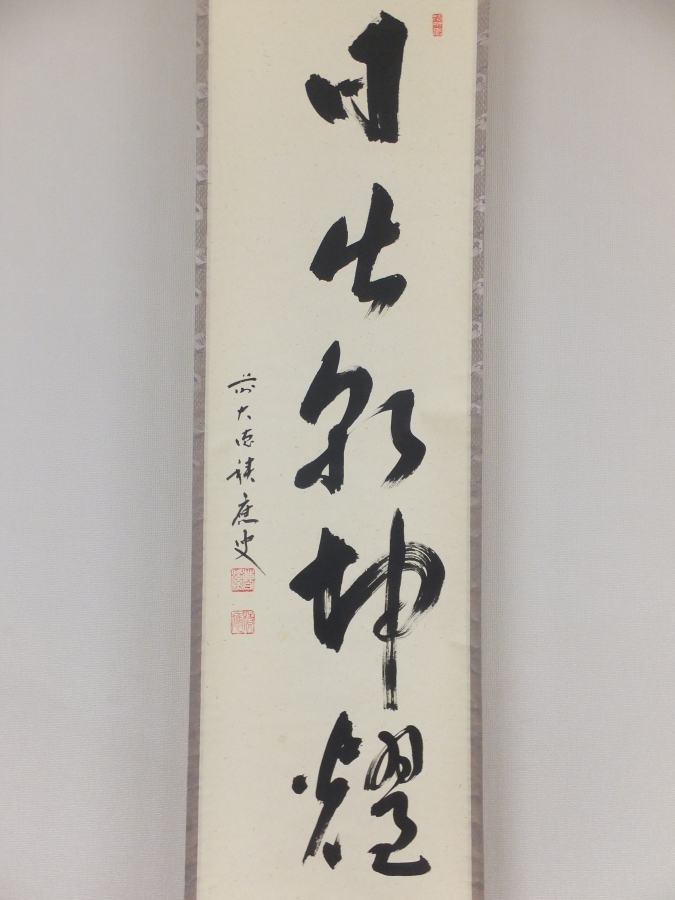 日出乾坤耀
前大徳 積應叟